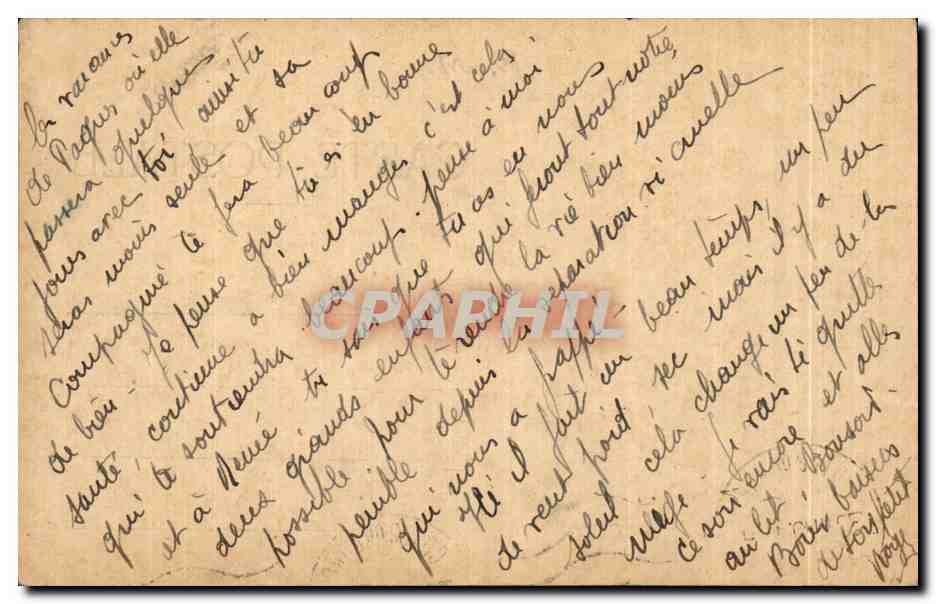 les vacances
de Paques où elle
passera quelques
jours avec toi aussi tu
seras moins seule et sa
compagnie te fera beaucoup
de bien - Je pense que tu es en bonne
santé continue a bien manger c'est cela
qui te soutiendra beaucoup. pense à moi
et à René tu sais que tu as en nous
deux grands enfants qui feront tout notre
possible pour te rendre la vie bien moins
penible depuis la separation si cruelle
qui nous a
Ici il fait un beau temps, un peu
de vent froid sec mais il y a du
soleil cela change un peu de la
neige je vais te quitter
ce soir encore et aller
au lit Bonsoir -
Bons baisers
de ton petit
CPAPHIL